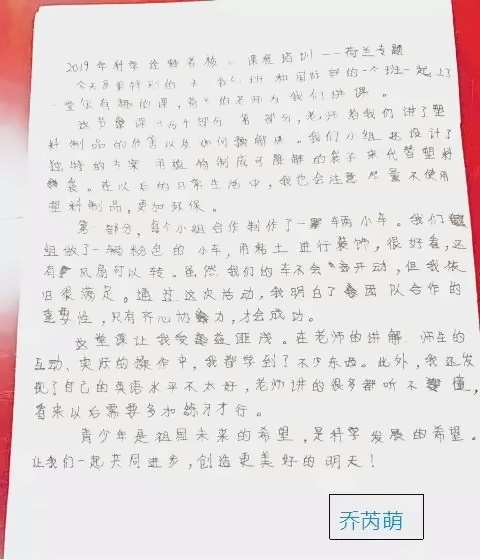 2019年科学诠释者核心课程培训——荷兰专题
今天是有特别的一天,我们班和国际部的一个班一起上了
一堂很有趣的课,荷兰的老师为我们讲课。
这节课分两个部分,第一部分,老师给我们讲了塑
料制品的危害以及如何解决。我们小组设计了
独特的方案,用植物制成可降解的袋子来代替塑料
袋。在以后的日常生活中,我也会注意尽量不使用
塑料制品,更加环保。
第二部分,每个小组合作制作了一辆小车。我们
组做了一辆粉色的小车,用粘土进行装饰,很好看,还
有风扇可以转。虽然我们的车不会开动,但我依
旧很满足。通过这次活动,我明白了团队合作的
重要性,只有齐心协力,才会成功。
这堂课让我受益匪浅。在老师的讲解、师生的
互动、实际的操作中,我都学到了不少东西。此外,我还发
现了自己的英语水平不太好,老师讲的很多都听不懂,
看来以后需要多加练习才行。
青少年是祖国未来的希望,是科学发展的希望。
让我们一起共同进步,创造更美好的明天!
乔芮萌